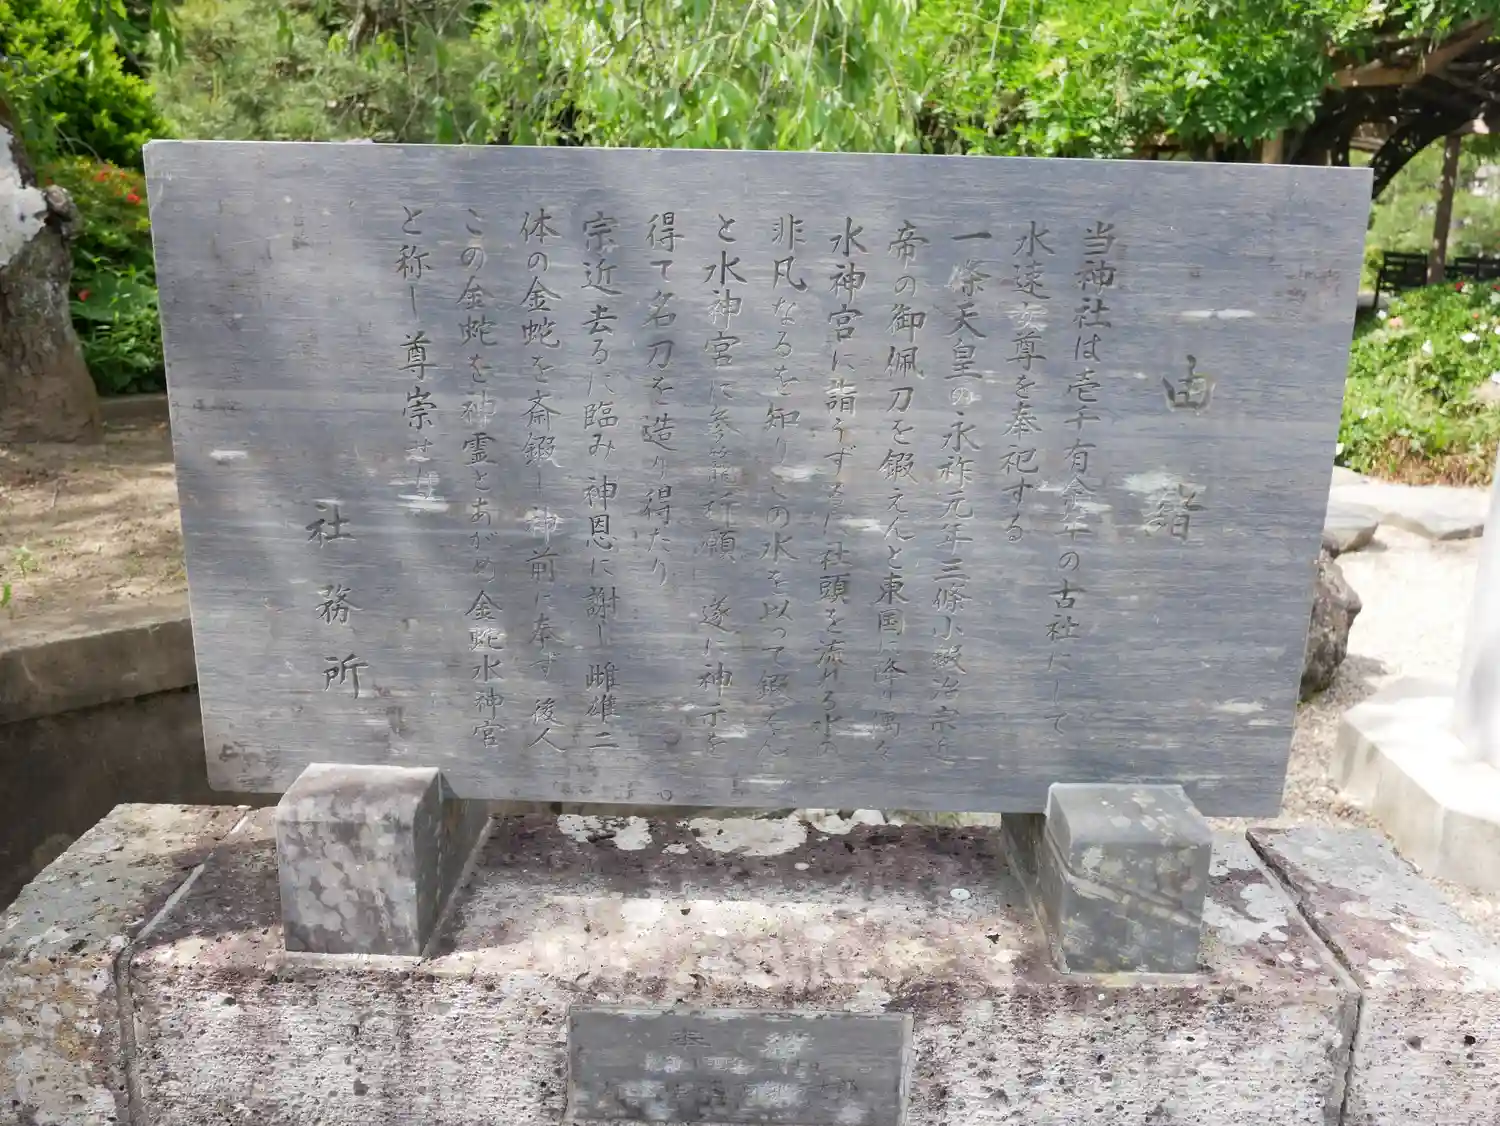 由緒
当神社は壱千有余年の古社にして
水速女尊を奉祀する
一條天皇の永祚元年三條小鍛冶宗近
帝の御佩刀を鍛えんと東国に降り寓々
水神宮に詣うずるに社頭を流れる水の
非凡なるを知りこの水を以って鍛えん
と水神宮に参籠祈願 遂に神示を
得て名刀を造り得たり
宗近去るに臨み神恩に謝し雌雄二
体の金蛇を斎鍛し神前に奉ず 後人
この金蛇を神霊とあがめ金蛇水神宮
と称し尊崇せり
社務所